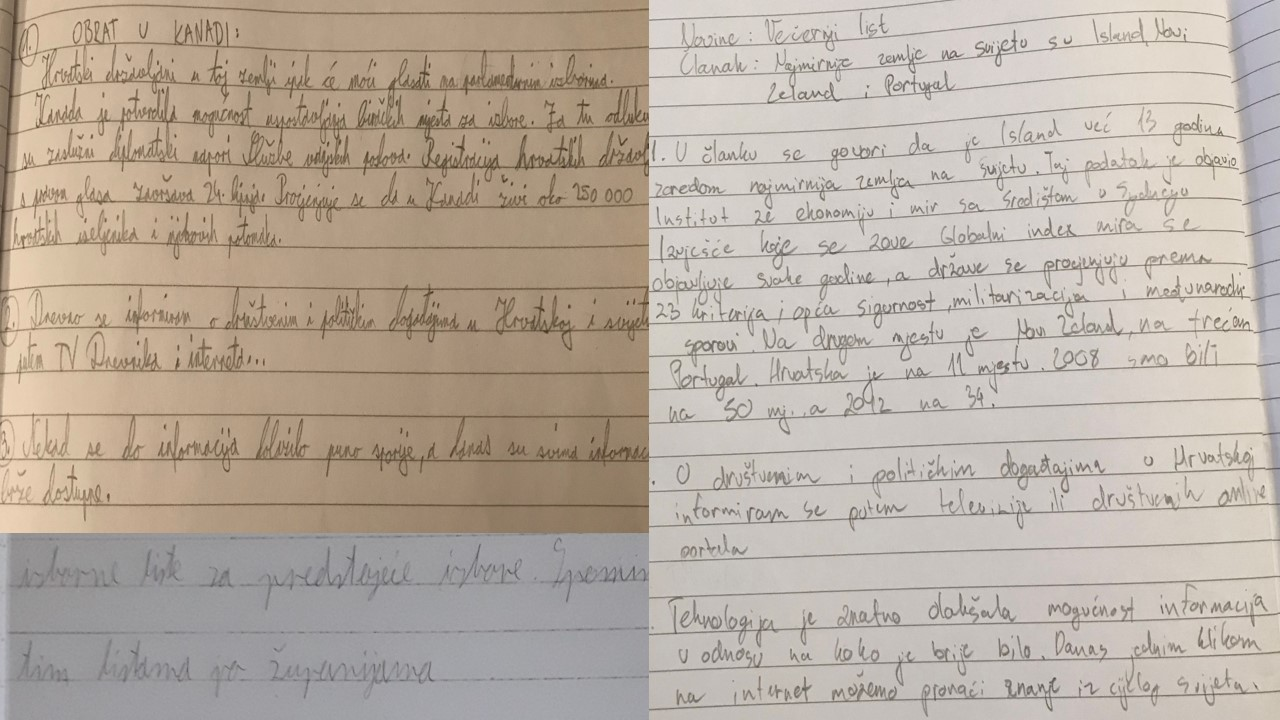 1. OBRAT U KANADI:
Hrvatski državljani u toj zemlji ipak će moći glasati na parlamentarnim izborima.
Kanada je potvrdila mogućnost uspostavljanja biračkih mjesta za izbore. Za tu odluku
su zaslužni diplomatski napori Službe vanjskih poslova. Registracija hrvatskih držav
s pravom glasa završava 24. lipnja. Procjenjuje se da u Kanadi živi oko 250 000
hrvatskih iseljenika i njihovih potomaka.
2. Dnevno se informiram o društvenim i političkim događajima u Hrvatskoj i svijetu
putem TV Dnevnika i interneta...
3. Nekad se do informacija dolazilo puno sporije, a danas su svima informac
brže dostupne.
izborne liste za predstojeće izbore. Spomin
tim listama po županijama
Novine: Večernji list
Članak: Najmirnije zemlje na svijetu su Island Novi
Zeland i Portugal
1. U članku se govori da je Island već 13 godina
zaredom najmirnija zemlja na svijetu. Taj podatak je objavio
Institut za ekonomiju i mir sa središtem u Sydneyu
Izvješće koje se zove Globalni index mira se
objavljuje svake godine, a države se procjenjuju prema
23 kriterija i opća sigurnost, militarizacija i međunarodni
sporovi. Na drugom mjestu je Novi Zeland, na trećem
Portugal. Hrvatska je na 11 mjestu. 2008 smo bili
na 50 mj. a 2012 na 34.
. O društvenim i političkim događajima u Hrvatskoj
informiram se putem televizije ili društvenih online
portala
. Tehnologija je znatno olakšala mogućnost informacija
u odnosu na koko je brije bilo. Danas jednim klikom
na internet možemo pronaći znanje iz cijelog svijeta.